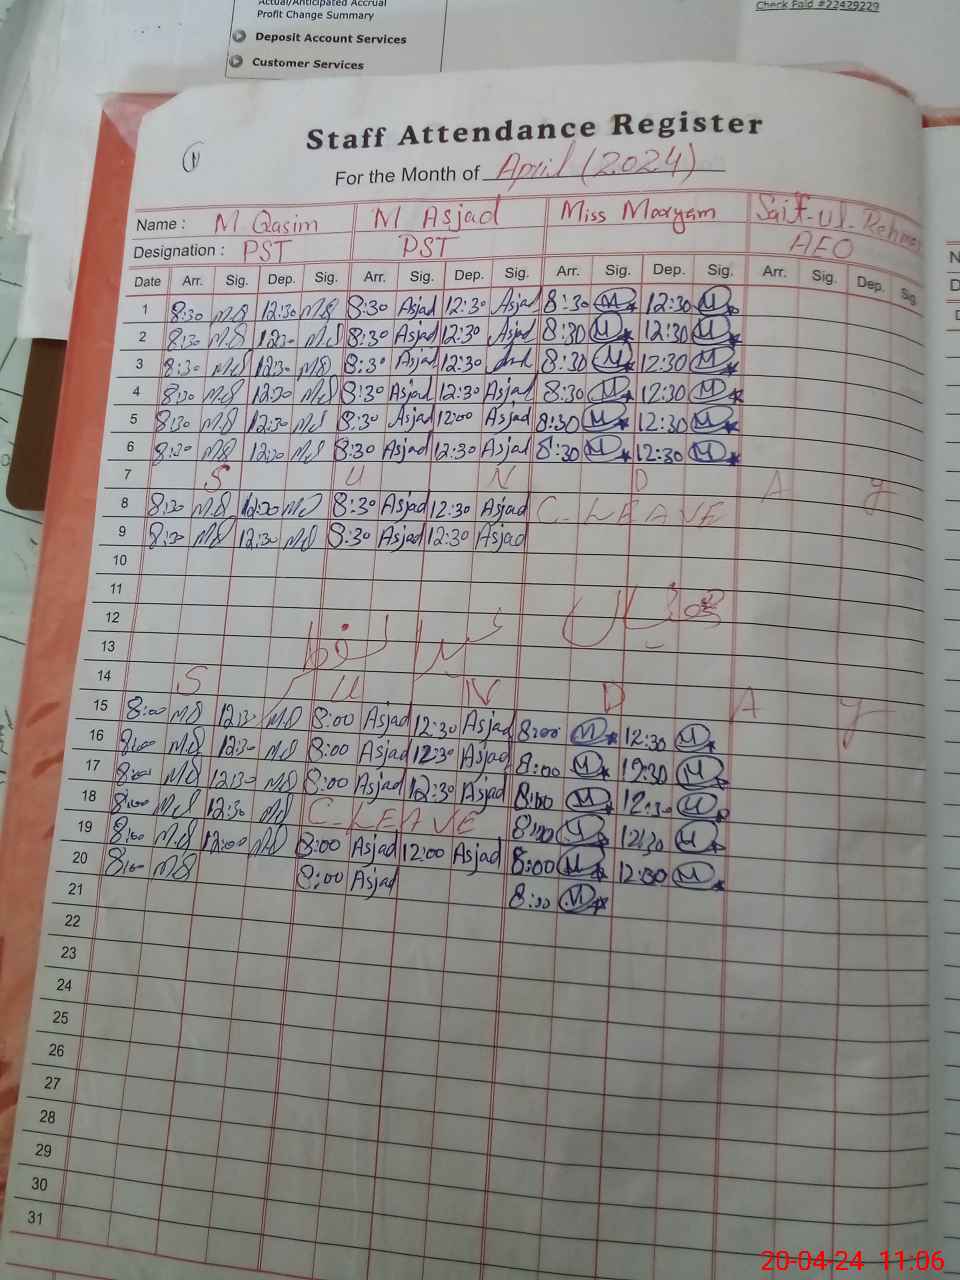 Actual/Anticipated Accrual
Profit Change Summary
Deposit Account Services
Customer Services
Check Paid #22429229
Staff Attendance Register
1
For the Month of April (2024)
Name : M Qasim M Asjad Miss Maryam Saif-ul-Rehman
Designation : PST PST AEO
Date Arr. Sig. Dep. Sig. Arr. Sig. Dep. Sig. Arr. Sig. Dep. Sig. Arr. Sig. Dep. Sig.
1 8:30 MQ 12:30 MQ 8:30 Asjad 12:30 Asjad 8:30 M 12:30 M
2 8:30 MQ 12:30 MQ 8:30 Asjad 12:30 Asjad 8:30 M 12:30 M
3 8:30 MQ 12:30 MQ 8:30 Asjad 12:30 8:30 M 12:30 M
4 8:30 MQ 12:30 MQ 8:30 Asjad 12:30 Asjad 8:30 M 12:30 M
5 8:30 MQ 12:30 MQ 8:30 Asjad 12:00 Asjad 8:30 M 12:30 M
6 8:30 MQ 12:30 MQ 8:30 Asjad 12:30 Asjad 8:30 M 12:30 M
7 S U N D A Y
8 8:30 MQ 12:30 MQ 8:30 Asjad 12:30 Asjad C-LEAVE
9 8:30 MQ 12:30 MQ 8:30 Asjad 12:30 Asjad
10
11
12
13
14 S U N D A Y
15 8:00 MQ 12:30 MQ 8:00 Asjad 12:30 Asjad 8:00 M 12:30 M
16 8:00 MQ 12:30 MQ 8:00 Asjad 12:30 Asjad 8:00 M 12:30 M
17 8:00 MQ 12:30 MQ 8:00 Asjad 12:30 Asjad 8:00 M 12:30 M
18 8:00 MQ 12:30 MQ C-LEAVE 8:00 M 12:30 M
19 8:00 MQ 12:00 MQ 8:00 Asjad 12:00 Asjad 8:00 M 12:00 M
20 8:00 MQ 8:00 Asjad 8:00 M
21
22
23
24
25
26
27
28
29
30
31
20-04-24 11:06